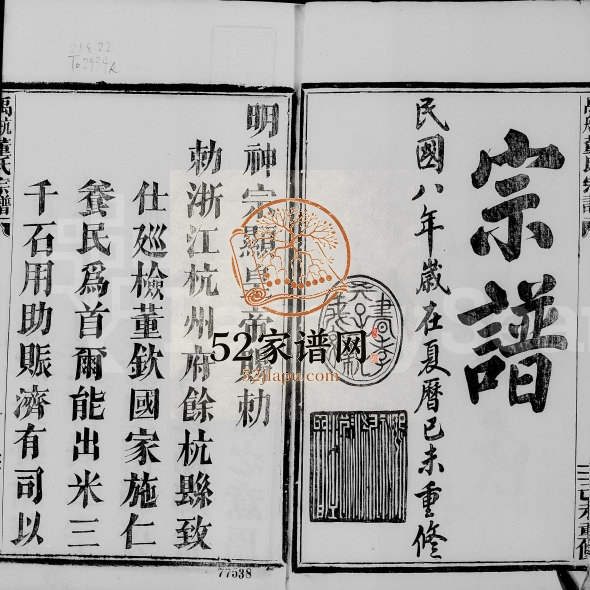 宗譜
民國八年歲在夏曆己未重修
明神宗顯皇帝
勅
勅浙江杭州府餘杭縣致
仕廵檢董欽國家施仁
養民爲首爾能出米三
千石用助賑濟有司以
禹航董氏宗譜
52家谱网
52jiapu.com
77538